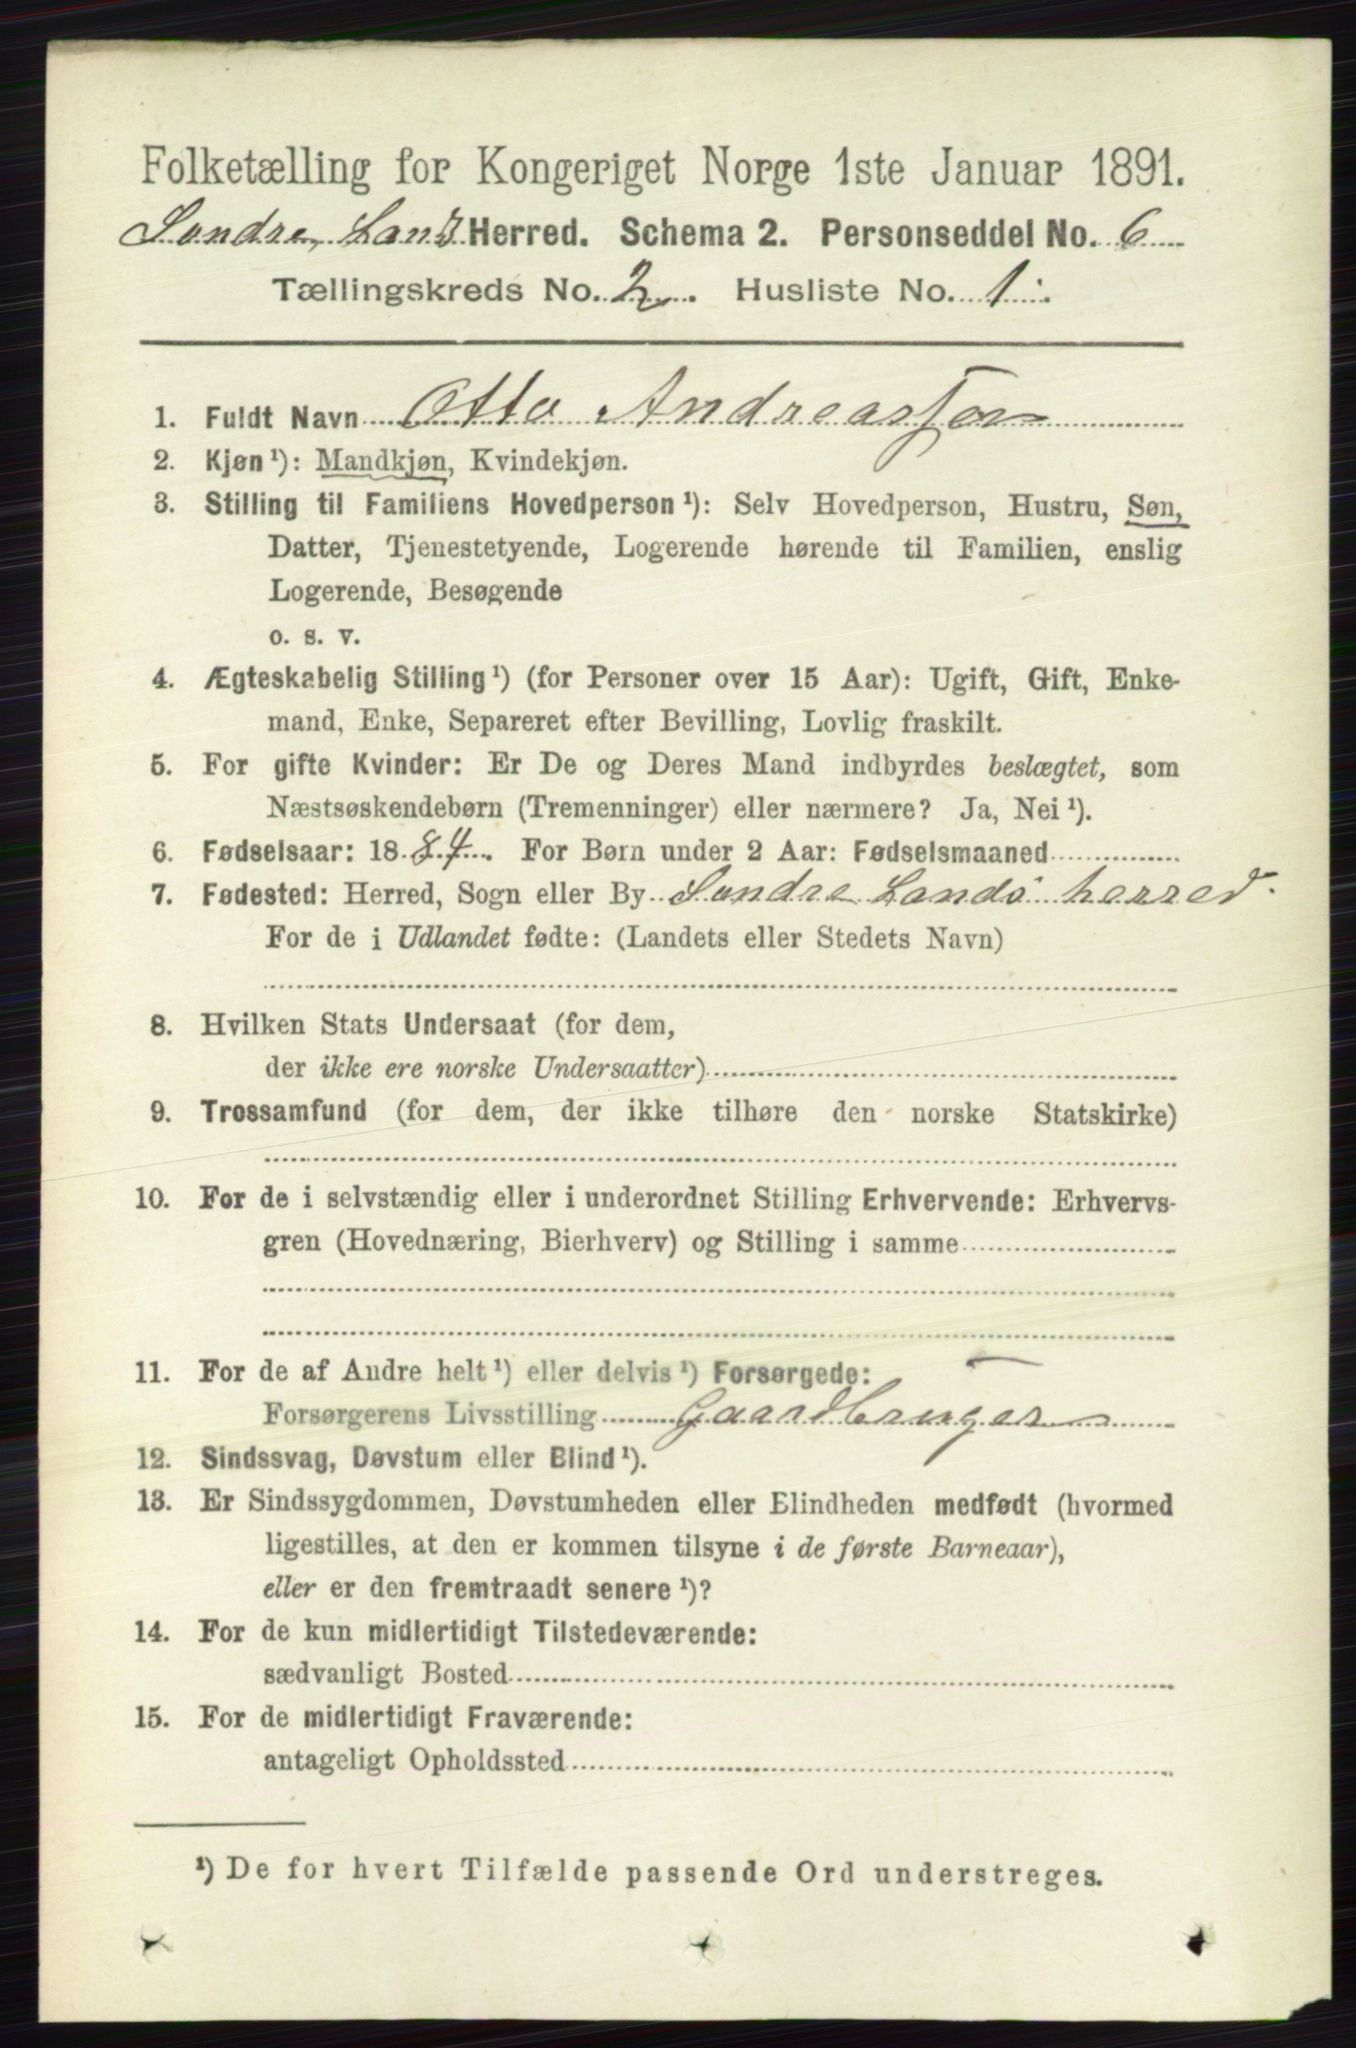 Folketælling for Kongeriget Norge 1ste Januar 1891.
Søndre Land Herred. Schema 2. Personseddel No. 6
Tællingskreds No. 2. Husliste No. 1.
1. Fuldt Navn Otto Andreassøn
2. Kjøn¹): Mandkjøn, Kvindekjøn.
3. Stilling til Familiens Hovedperson¹): Selv Hovedperson, Hustru, Søn,
Datter, Tjenestetyende, Logerende hørende til Familien, enslig
Logerende, Besøgende
o. s. v.
4. Ægteskabelig Stilling¹) (for Personer over 15 Aar): Ugift, Gift, Enke-
mand, Enke, Separeret efter Bevilling, Lovlig fraskilt.
5. For gifte Kvinder: Er De og Deres Mand indbyrdes beslægtet, som
Næstsøskendebørn (Tremenninger) eller nærmere? Ja, Nei¹).
6. Fødselsaar: 1884. For Børn under 2 Aar: Fødselsmaaned
7. Fødested: Herred, Sogn eller By Søndre Lands herred
For de i Udlandet fødte: (Landets eller Stedets Navn)
8. Hvilken Stats Undersaat (for dem,
der ikke ere norske Undersaatter)
9. Trossamfund (for dem, der ikke tilhøre den norske Statskirke)
10. For de i selvstændig eller i underordnet Stilling Erhvervende: Erhvervs-
gren (Hovednæring, Bierhverv) og Stilling i samme
11. For de af Andre helt¹) eller delvis¹) Forsørgede:
Forsørgerens Livsstilling Gaardbruger
12. Sindssvag, Døvstum eller Blind¹).
13. Er Sindssygdommen, Døvstumheden eller Blindheden medfødt (hvormed
ligestilles, at den er kommen tilsyne i de første Barneaar),
eller er den fremtraadt senere¹)?
14. For de kun midlertidigt Tilstedeværende:
sædvanligt Bosted
15. For de midlertidigt Fraværende:
antageligt Opholdssted
¹) De for hvert Tilfælde passende Ord understreges.